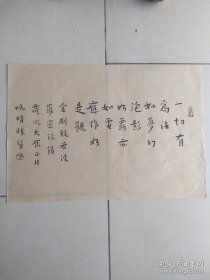 一切有
為法
如夢幻
泡影
如露亦
如電
應作如
是觀
金剛般若波
羅蜜經
歲次正月